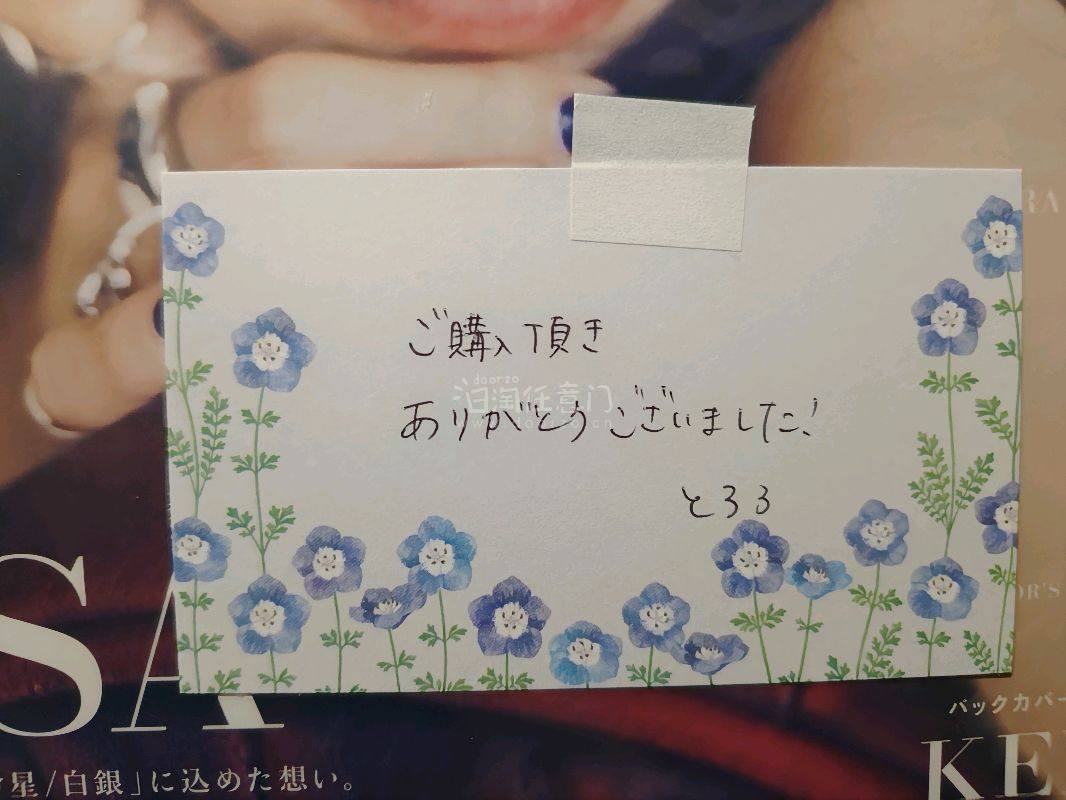 ご購入頂き
ありがとうございました!
とろろ
doorzo
泊淘任意门
RA
OR'S
SA
星/白銀」に込めた想い。
バックカバー
KE